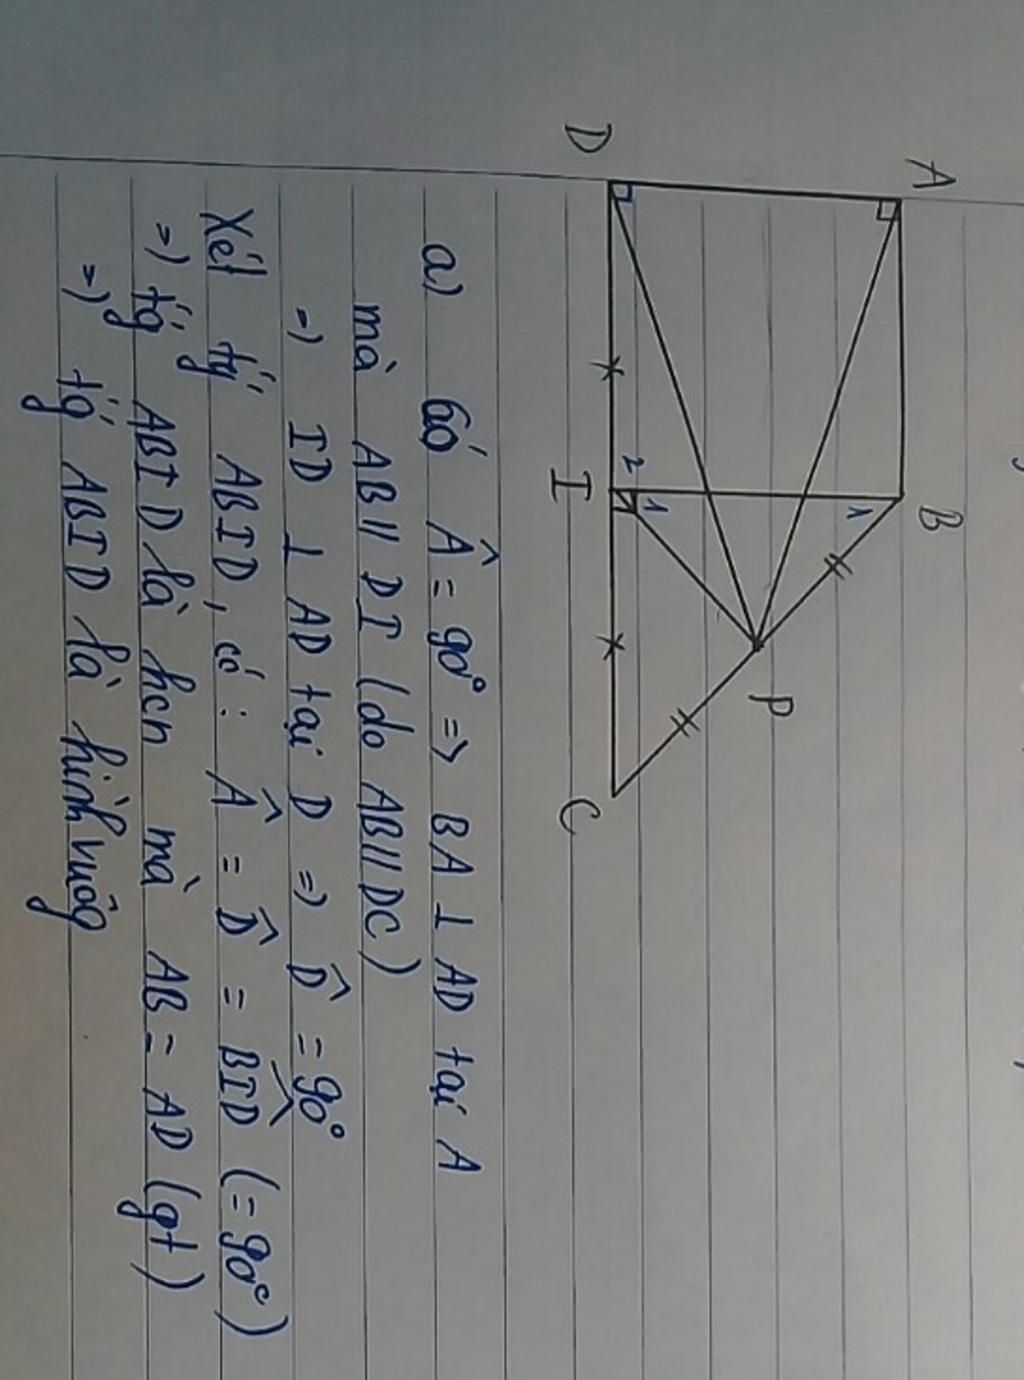 A
B
P
D
I
C
1
1
2
a) Có Â = 90° => BA ⊥ AD tại A
mà AB // DI (do AB // DC)
=> ID ⊥ AD tại D => D̂ = 90°
Xét tg ABID, có: Â = D̂ = BID̂ (= 90°)
=> tg ABID là hcn mà AB = AD (gt)
=> tg ABID là hình vuông